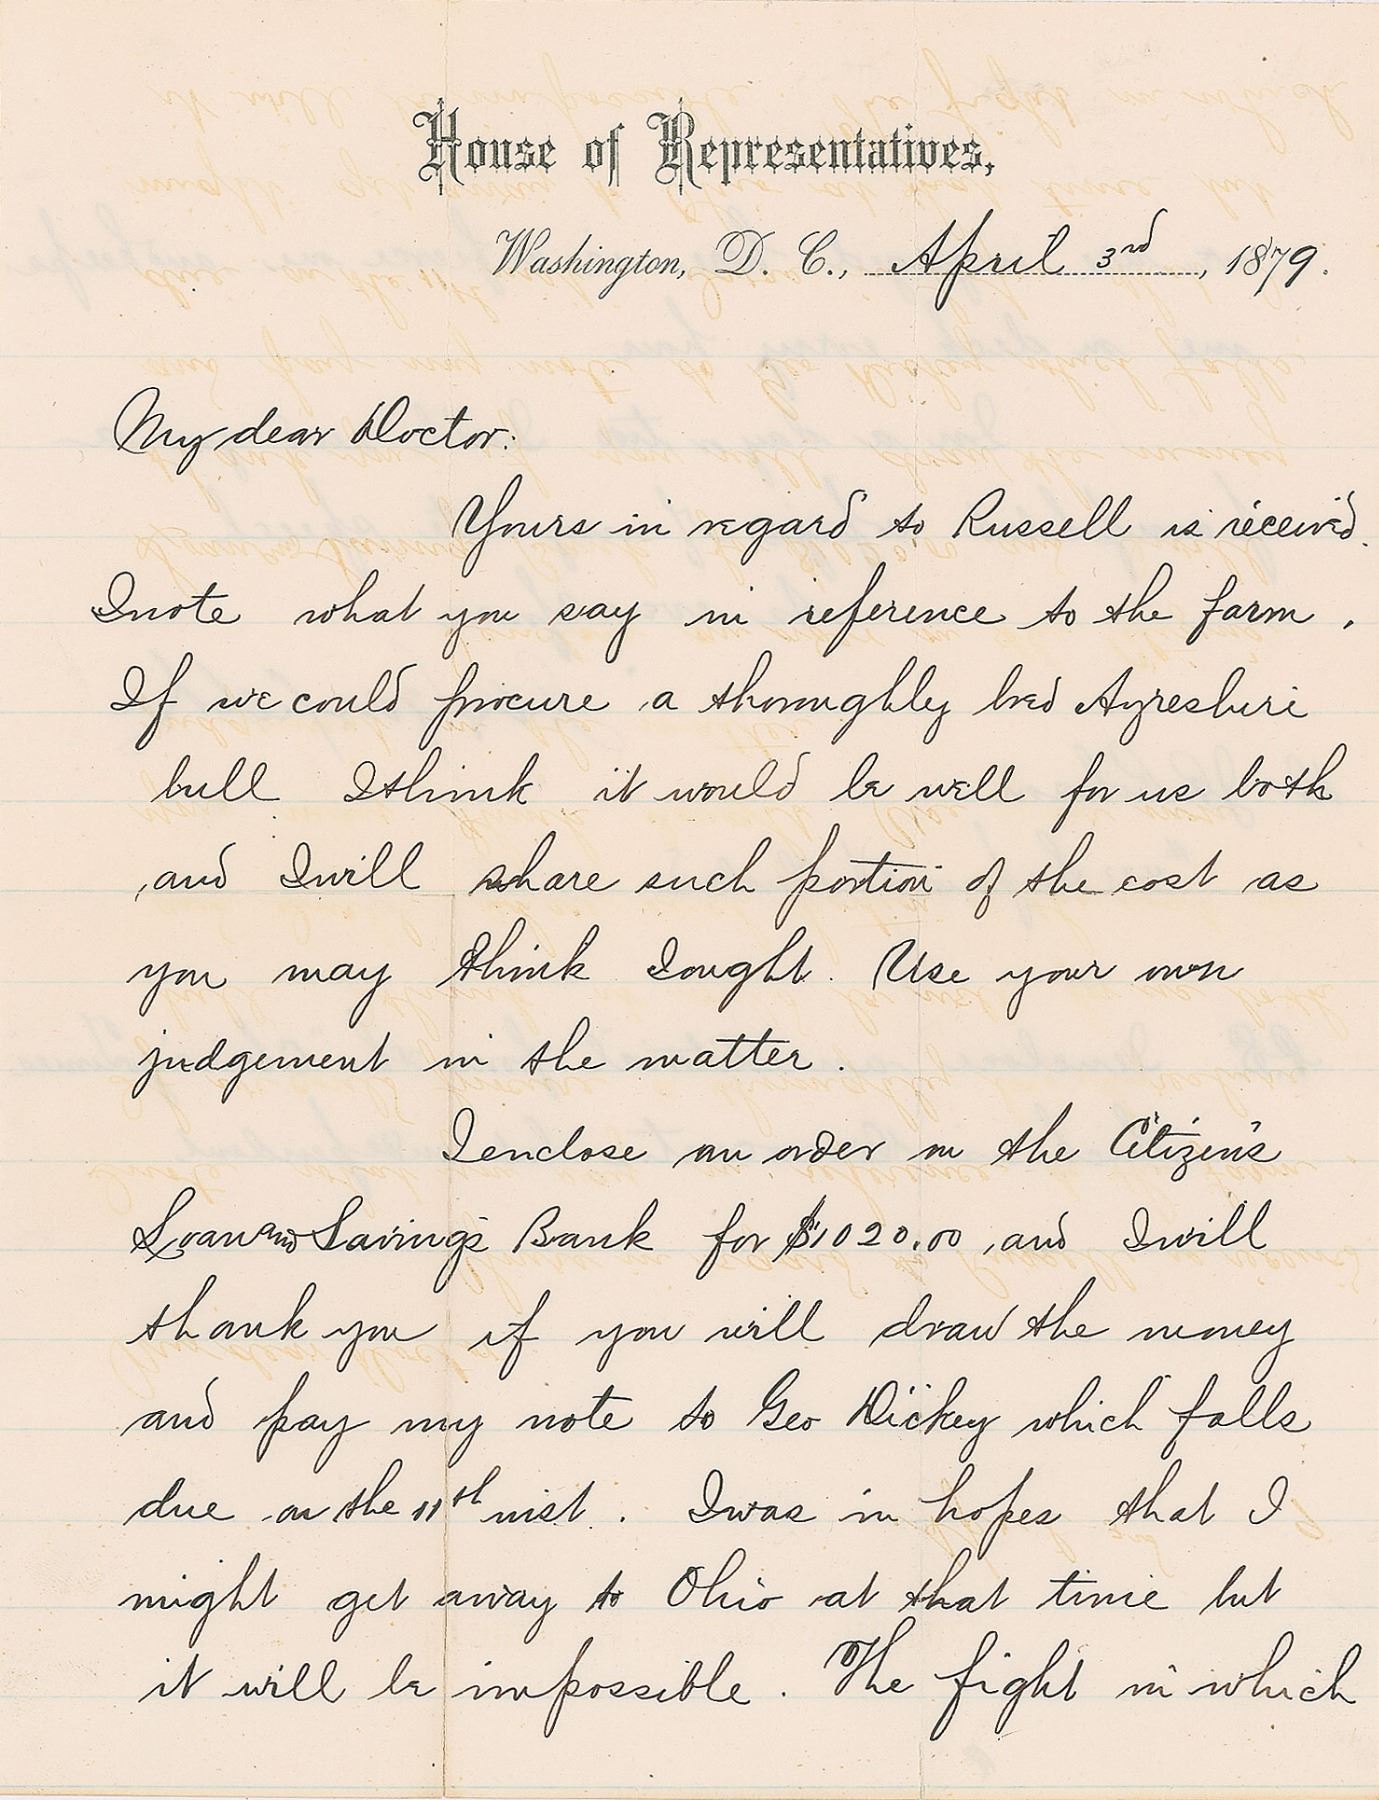 House of Representatives,
Washington, D. C., April 3rd, 1879.
My dear Doctor:
Yours in regard to Russell is received.
I note what you say in reference to the farm.
If we could procure a thoroughly bred Ayreshire
bull I think it would be well for us both
and I will share such portion of the cost as
you may think I ought. Use your own
judgement in the matter.
I enclose an order on the Citizen's
Loan and Saving's Bank for $1020.00, and I will
thank you if you will draw the money
and pay my note to Geo Dickey which falls
due on the 11th inst. I was in hopes that I
might get away to Ohio at that time but
it will be impossible. The fight in which